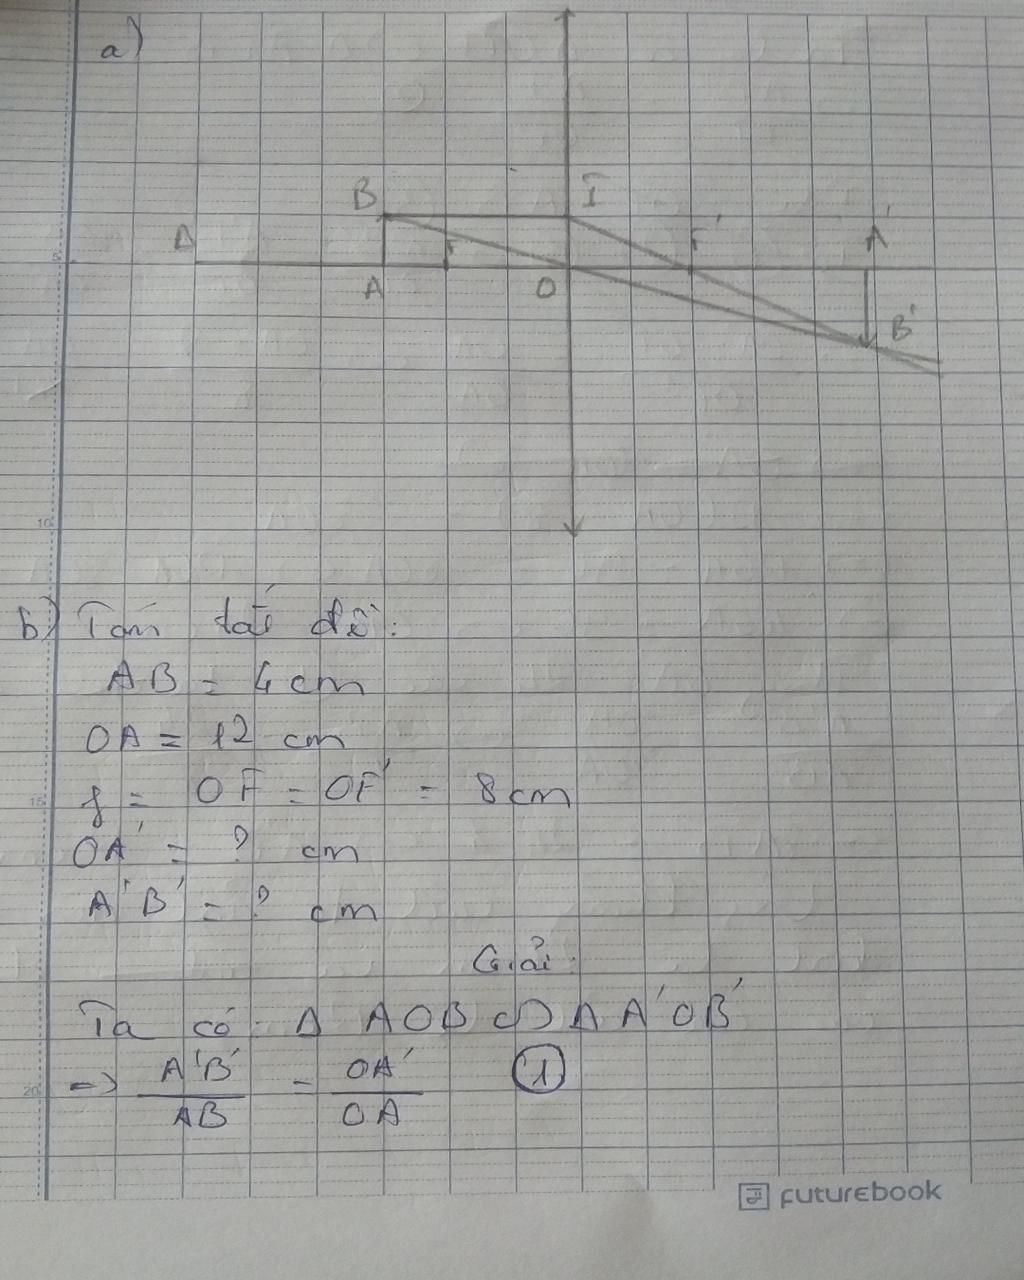 a)
B I
Δ F F' A'
A O B'
5
10
b) Tóm tắt đề:
AB = 4 cm
OA = 12 cm
15 f = OF = OF' = 8 cm
OA' = ? cm
A'B' = ? cm
Giải:
Ta có: Δ AOB ∽ Δ A'OB'
20 => A'B'/AB = OA'/OA (1)
futurebook